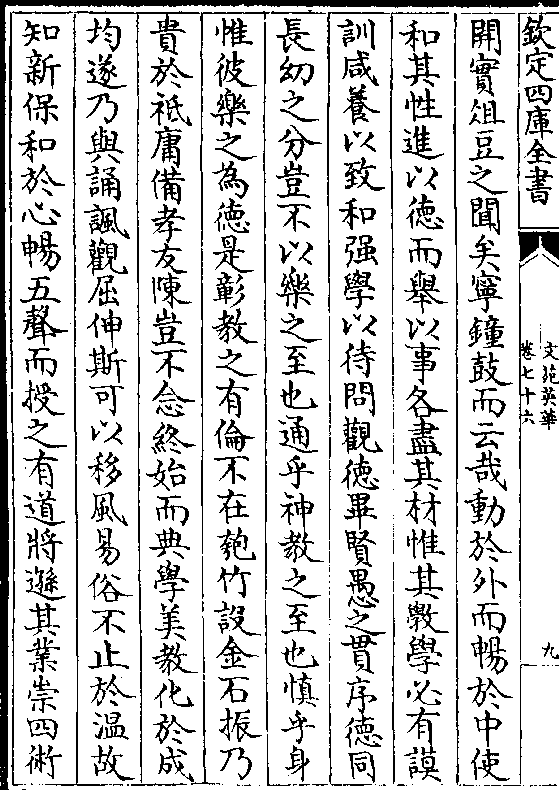 欽定四庫全書
文苑英華
卷七十六
九
開實俎豆之聞矣寧鐘鼓而云哉動於外而暢於中使
和其性進以德而舉以事各盡其材惟其斆學必有謨
訓咸養以致和强學以待問觀德畢賢愚之貫序德同
長幼之分豈不以樂之至也通乎神教之至也慎乎身
惟彼樂之為德是彰教之有倫不在匏竹設金石振乃
貴於祗庸備孝友陳豈不念終始而典學美教化於成
均遂乃與誦諷觀屈伸斯可以移風易俗不止於温故
知新保和於心暢五聲而授之有道將遜其業崇四術